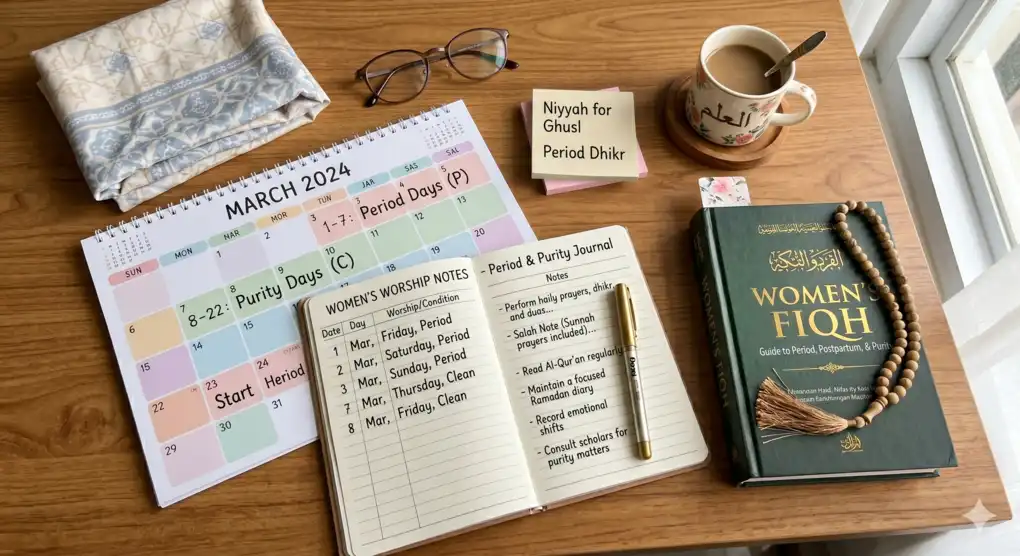 MARCH 2024
SUN
MON
NAR
MOR
TUN
JAR
SAS
SAL
1
2
3
3
4
5
1-7: Period Days (P)
7
8
9
10
11
12
13
8-22: Purity Days (C)
6
14
15
18
19
20
15
22
23
24
Start Heriod
29
30
31
Niyyah for
Ghusl
Period Dhikr
العلم
WOMEN'S WORSHIP NOTES
Date Day Worship/Condition
1 Mar, Friday, Period
2 Mar, Saturday, Period
3 Mar, Sunday, Period
7 Mar, Thursday, Clean
8 Mar, Friday, Clean
- Period & Purity Journal
Notes
- Perform haily prayers, dhikr
and duas...
- Salah Note (Sunnah
prayers included)...
- Read Al-Qur'an regularly
- Maintain a focused
Ramadan diary
- Record emotional
shifts
- Consult scholars for
purity matters
WOMEN'S
FIQH
Guide to Period, Postpartum, & Purity
WOMEN'S FIQH